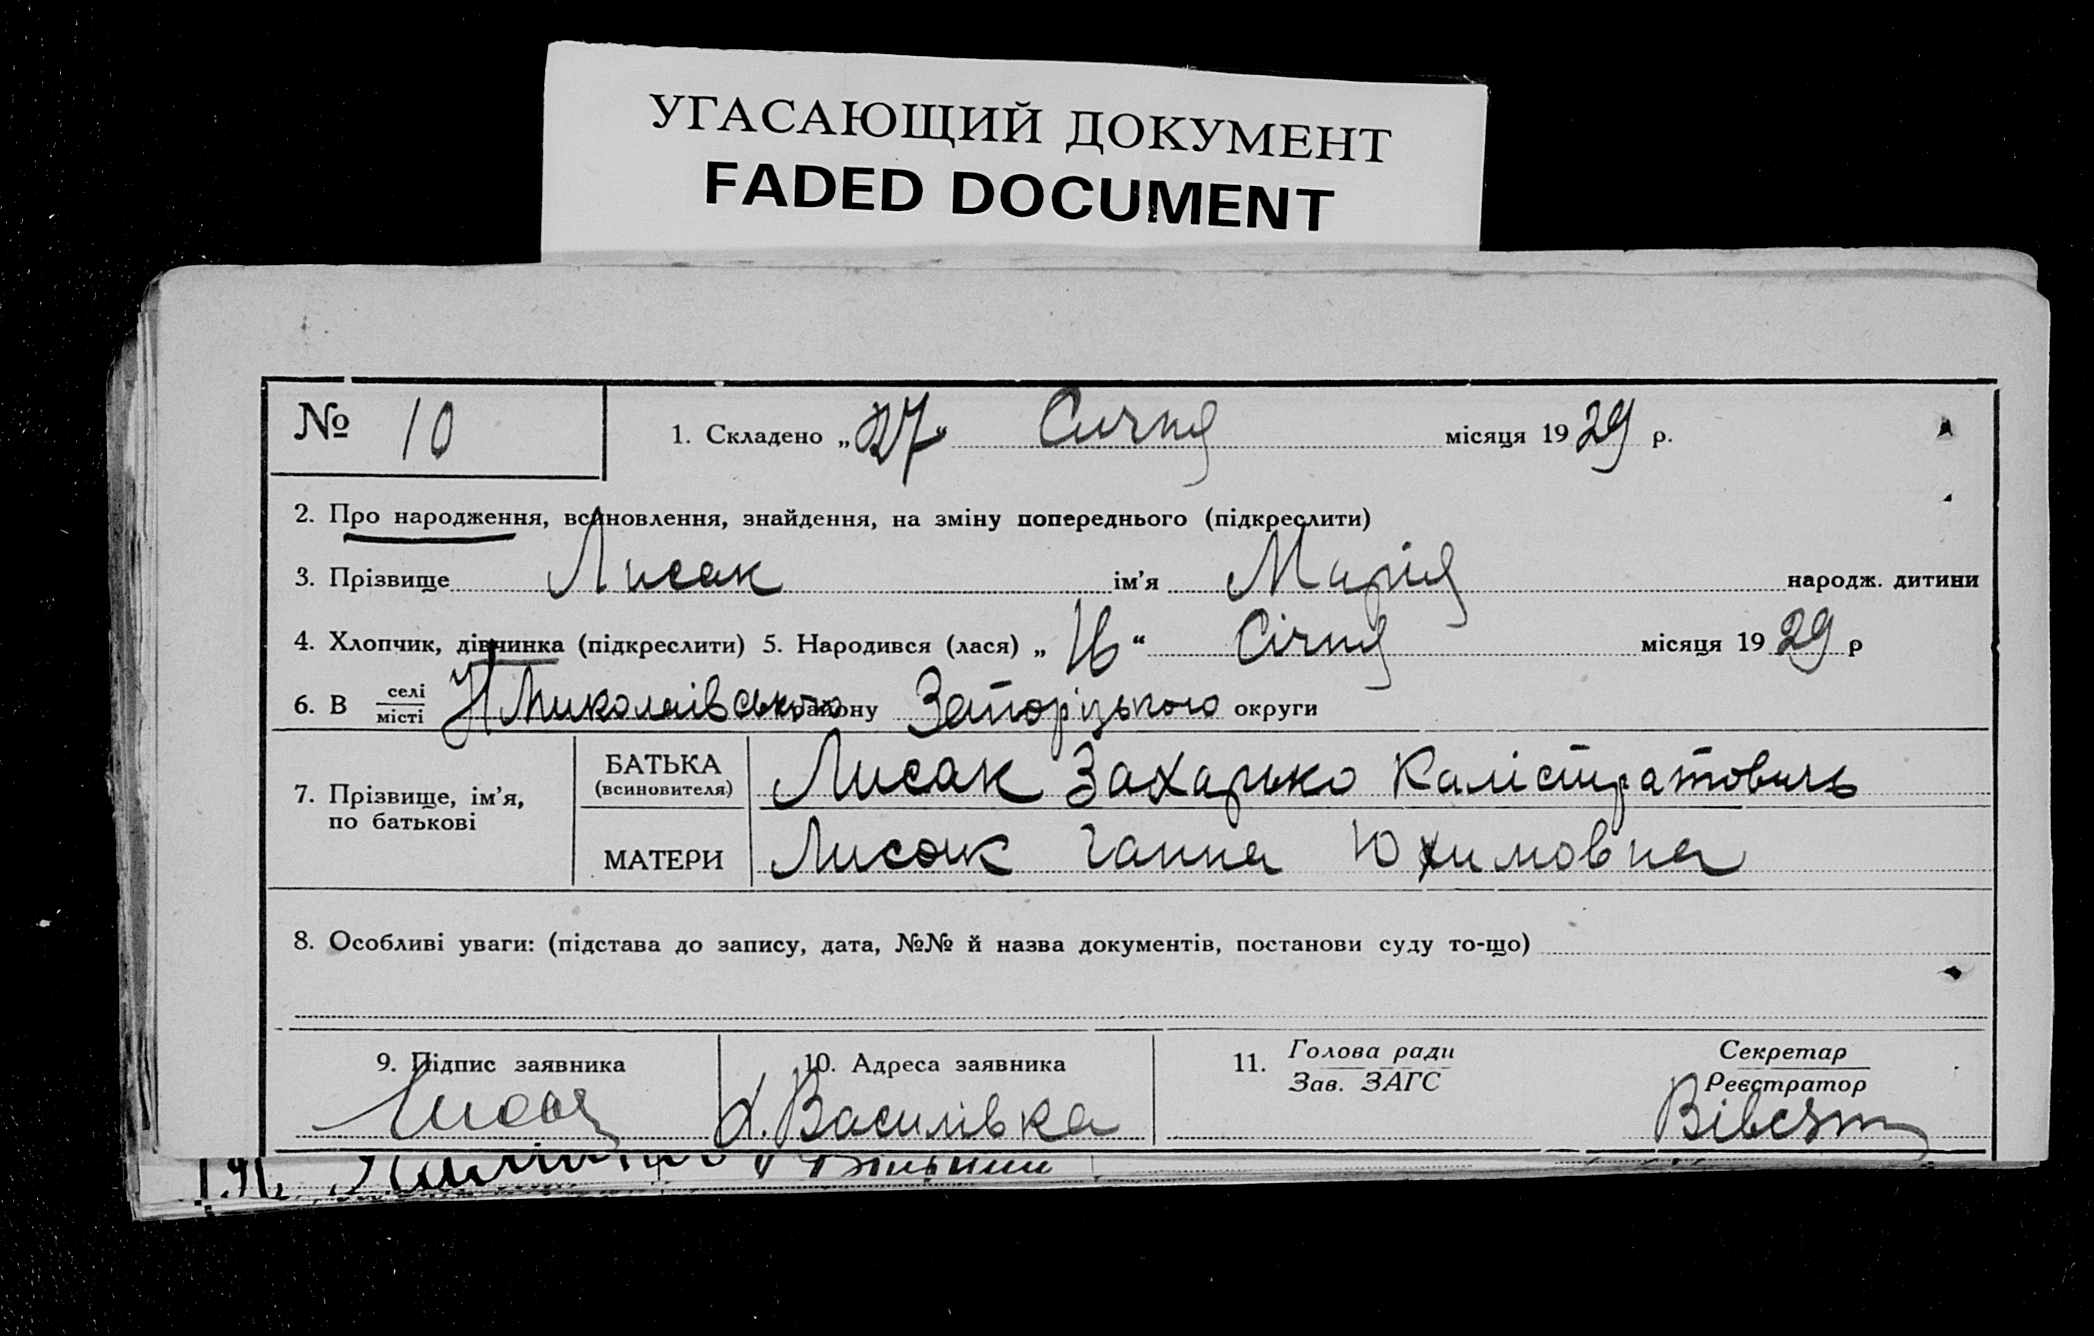 УГАСАЮЩИЙ ДОКУМЕНТ
FADED DOCUMENT
№ 10
1. Складено „27“ Січня місяця 1929 р.
2. Про народження, всиновлення, знайдення, на зміну попереднього (підкреслити)
3. Прізвище Лисак ім’я Марія народж. дитини
4. Хлопчик, дівчинка (підкреслити) 5. Народився (лася) „16“ Січня місяця 1929 р
6. В селі місті Н Миколаівського району Запоріцького округи
7. Прізвище, ім’я, по батькові
БАТЬКА (всиновителя) Лисак Захарько Калістратовичь
МАТЕРИ Лисак Ганна Юхимовна
8. Особливі уваги: (підстава до запису, дата, №№ й назва документів, постанови суду то-що)
9. Підпис заявника
10. Адреса заявника
11. Голова ради Зав. ЗАГС
Секретар Реєстратор
Х. Василівка